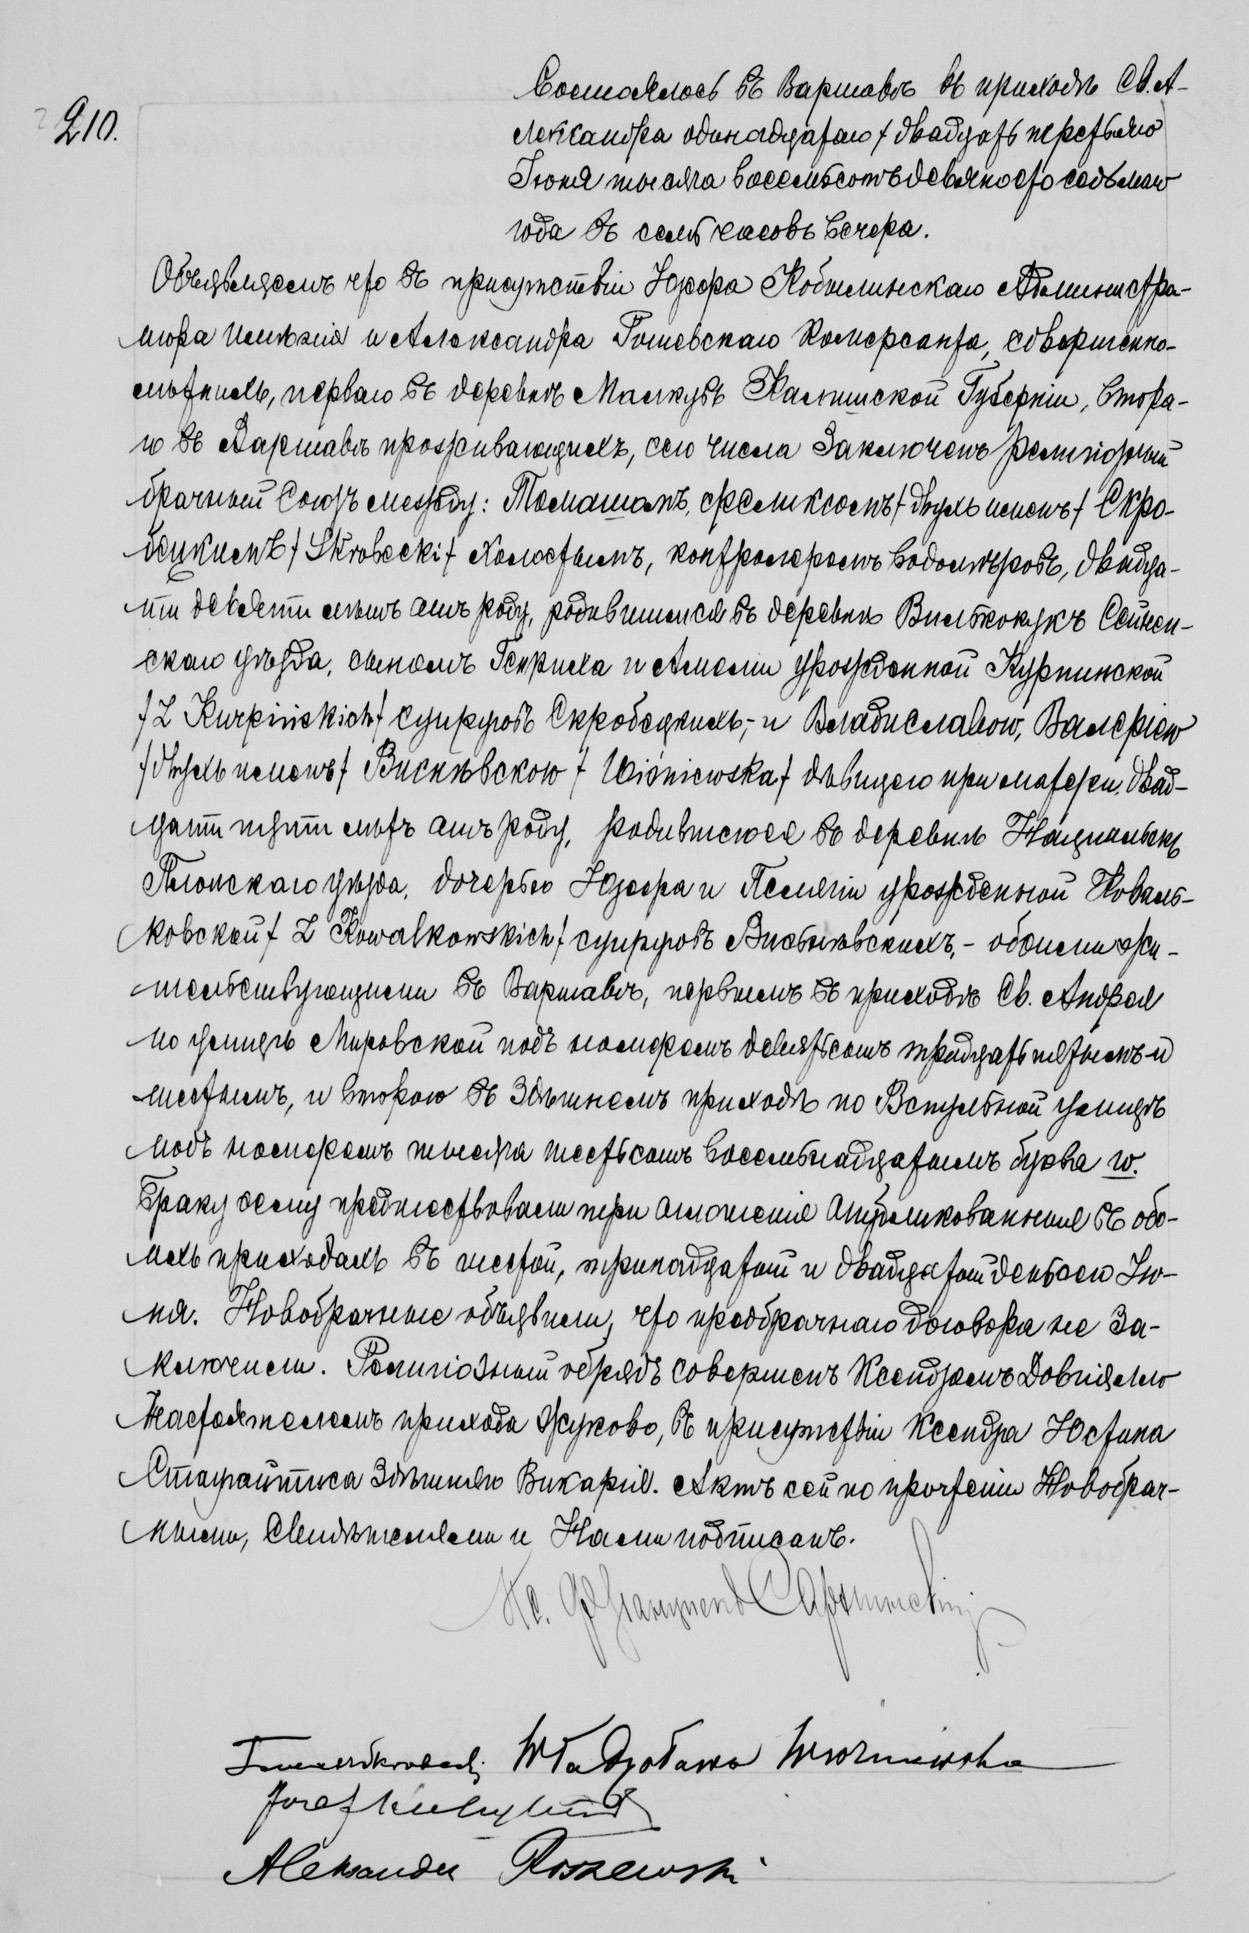 210.
Состоялось въ Варшавѣ въ приходѣ Св. А-
лександра одинадцатаго / двадцать третьяго
Іюня тысяча восемьсотъ девяносто седьмаго
года въ семь часовъ вечера.
Объявляемъ что въ присутствіи Юзефа Кобылинскаго Администра-
тора имѣнія и Александра Рошевскаго Комерсанта, совершенно-
лѣтнихъ, перваго въ деревнѣ Малкувъ Калишской Губерніи, втора-
го въ Варшавѣ проживающихъ, сего числа заключенъ религіозный
брачный союзъ между: Томашомъ, Феликсомъ / двухъ именъ / Скро-
бецкимъ / Skrobecki / холостымъ, контролеромъ водомѣровъ, двадца-
ти девяти лѣтъ отъ роду, родившимся въ деревнѣ Вильтокукъ Сейнен-
скаго уѣзда, сыномъ Генриха и Амеліи урожденной Курпинской
/ Z Kurpińskich / супруговъ Скробецкихъ, - и Владиславою, Валеріею
/ двухъ именъ / Виснѣвскою / Wiśniewska / дѣвицею при матери, двад-
цати пяти лѣтъ отъ роду, родившеюся въ деревнѣ Нацпольскъ
Плонскаго уѣзда, дочерью Юзефа и Пелагіи урожденной Коваль-
ковской / Z Kowalkowskich / супруговъ Висьнѣвскихъ, - обоими жи-
тельствующими въ Варшавѣ, первымъ въ приходѣ Св. Андрея
по улицѣ Мировской подъ номеромъ девятьсотъ тридцать пятымъ и
шестымъ, и второю въ здѣшнемъ приходѣ по Вспульной улицѣ
подъ номеромъ тысяча шестьсотъ восемьнадцатымъ буква w.
Браку сему предшествовали три оглашенія опубликованныя въ обо-
ихъ приходахъ въ шестой, тринадцатый и двадцатый день сего Ію-
ня. Новобрачные объявили, что предбрачнаго договора не за-
ключили. Религіозный обрядъ совершенъ Ксендзомъ Довгялло
Настоятелемъ прихода Жуково, въ присутствіи Ксендза Юстина
Стагайтиса здѣшняго Викарія. Актъ сей по прочтеніи Новобрач-
нымъ, Свидѣтелями и Нами подписанъ.
Кс.
Władysława Wiśniewska
Józef
Aleksander Roszewski